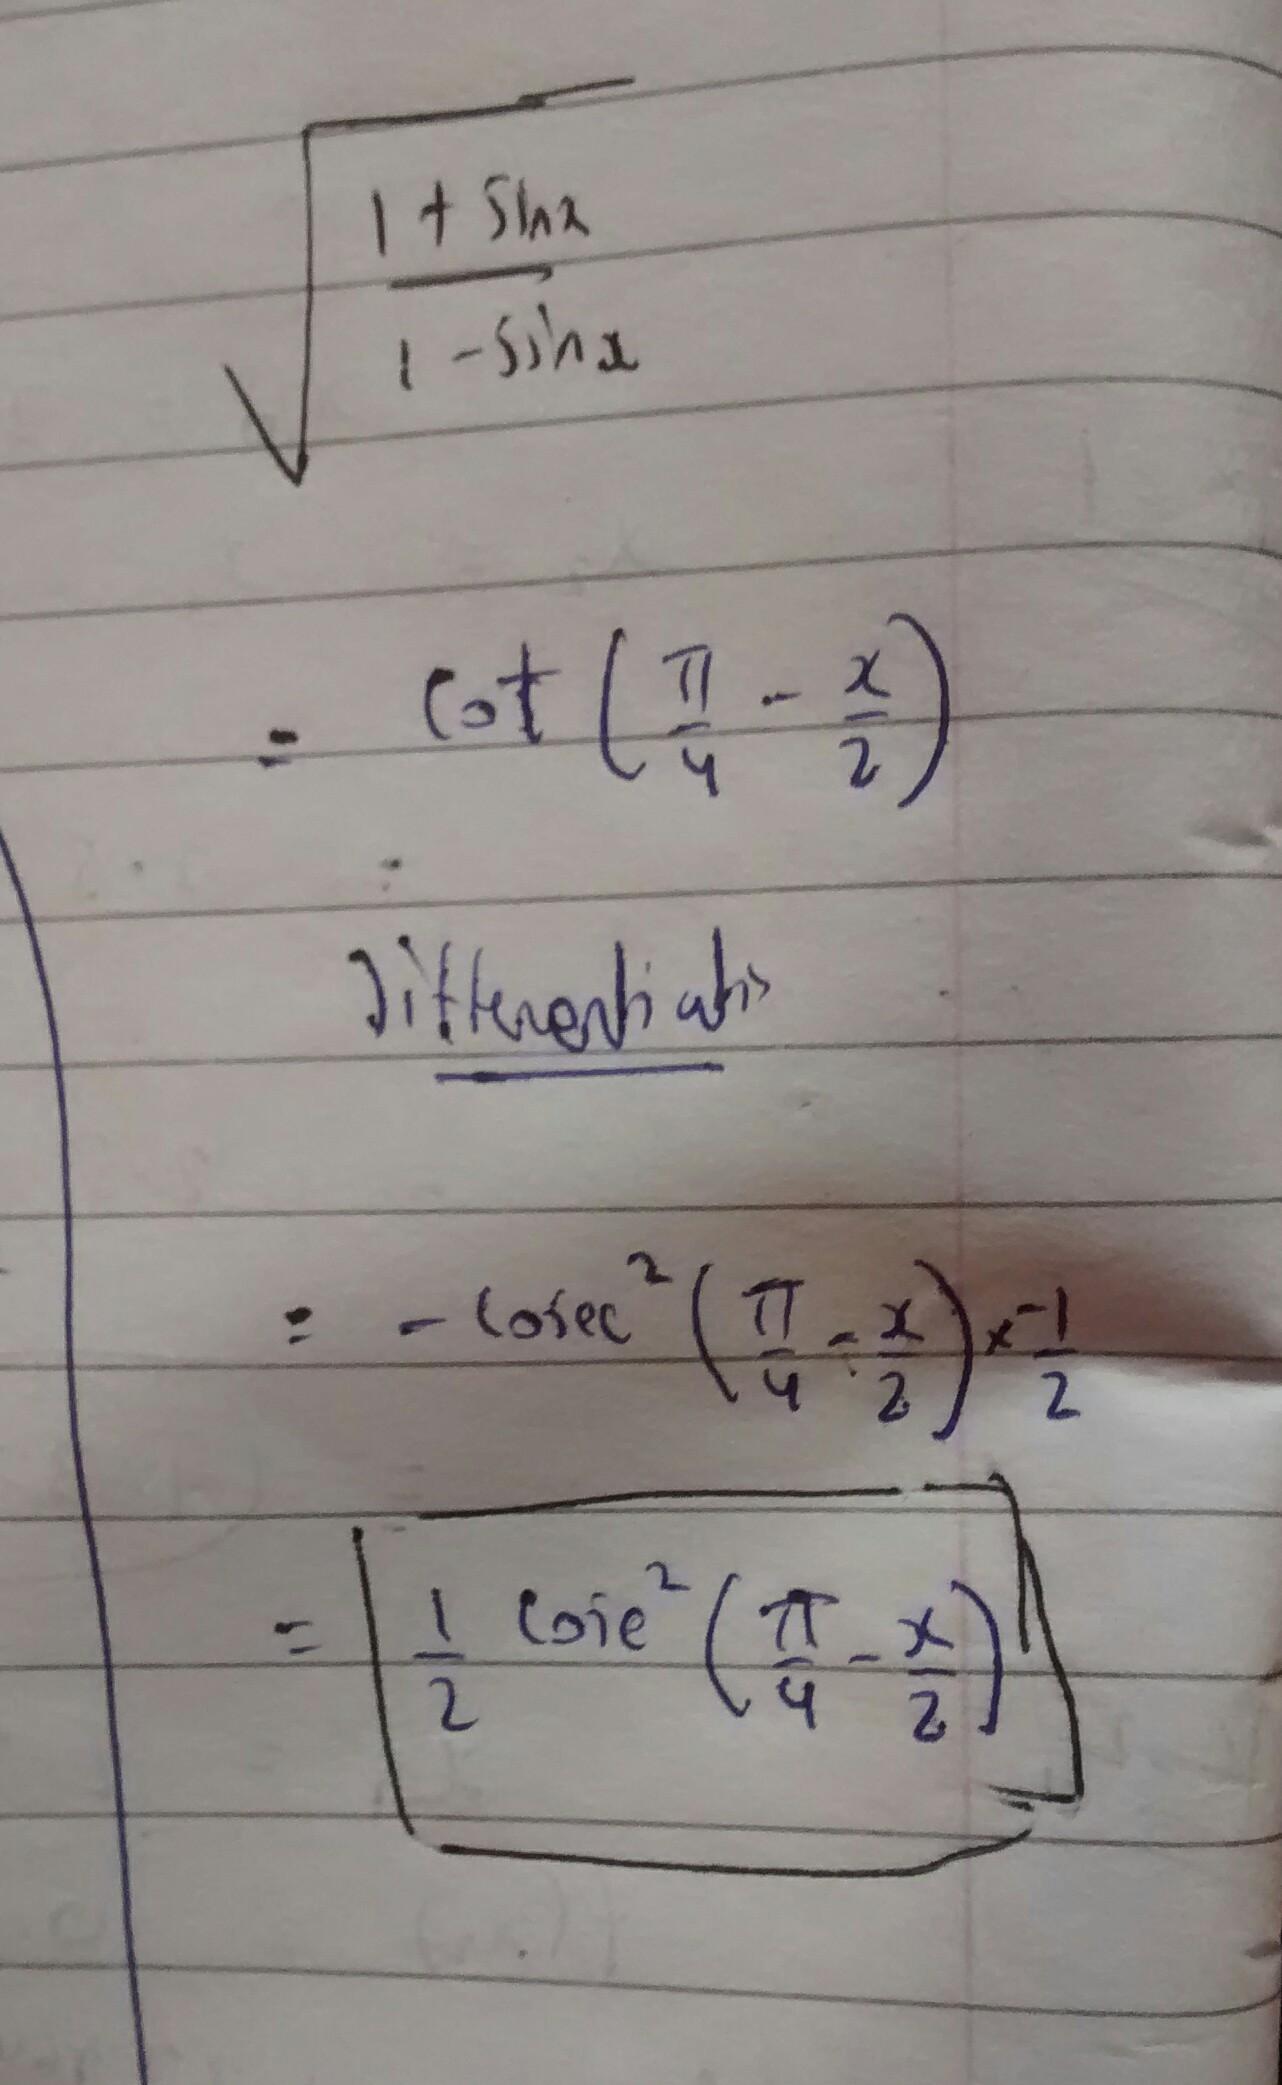 √(1 + sinx / 1 - sinx)
= cot (π/4 - x/2)
Differentiatis
= - cosec² (π/4 - x/2) x -1/2
= 1/2 cose² (π/4 - x/2)